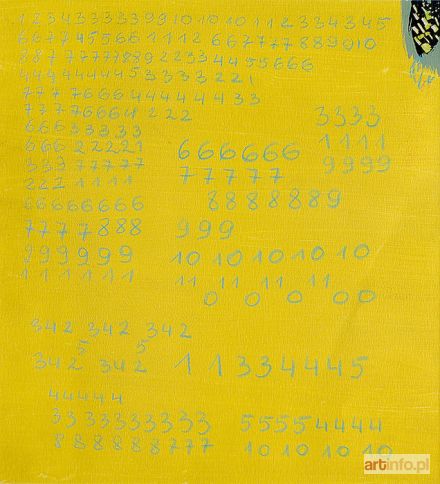 1 2 3 4 3 3 3 3 3 9 9 10 10 10 1 1 2 3 3 4 3 4 5
6 6 7 7 4 5 5 6 6 1 1 1 2 6 6 7 7 7 8 8 9 9 10
8 8 7 7 7 7 7 7 8 8 9 2 2 3 3 4 4 5 5 6 6 6
4 4 9 4 4 4 4 4 5 3 3 3 3 2 2 1
7 7 7 7 6 6 6 4 4 4 4 4 4 3 3
7 7 7 7 6 6 6 4 2 2 2
6 6 6 3 3 3 3 3
6 6 6 2 2 2 2 1
3 3 9 7 7 7 7 7
2 2 2 1 1 1 1
6 6 6 6 6 6 6 6
7 7 7 7 8 8 8
9 9 9 9 9 9
1 1 1 1 1 1
3 3 3 3
1 1 1 1
9 9 9 9
6 6 6 6 6 6
7 7 7 7 7
8 8 8 8 8 8 9
9 9 9
10 10 10 10 10
11 11 11 11
0 0 0 0 0
342 342 342
342 5 342 5
1 1 3 3 4 4 4 5
4 4 4 4 4
3 3 3 3 3 3 3 3 3
8 8 8 8 8 8 7 7 7
5 5 5 5 4 4 4 4
10 10 10 10
artinfo.pl